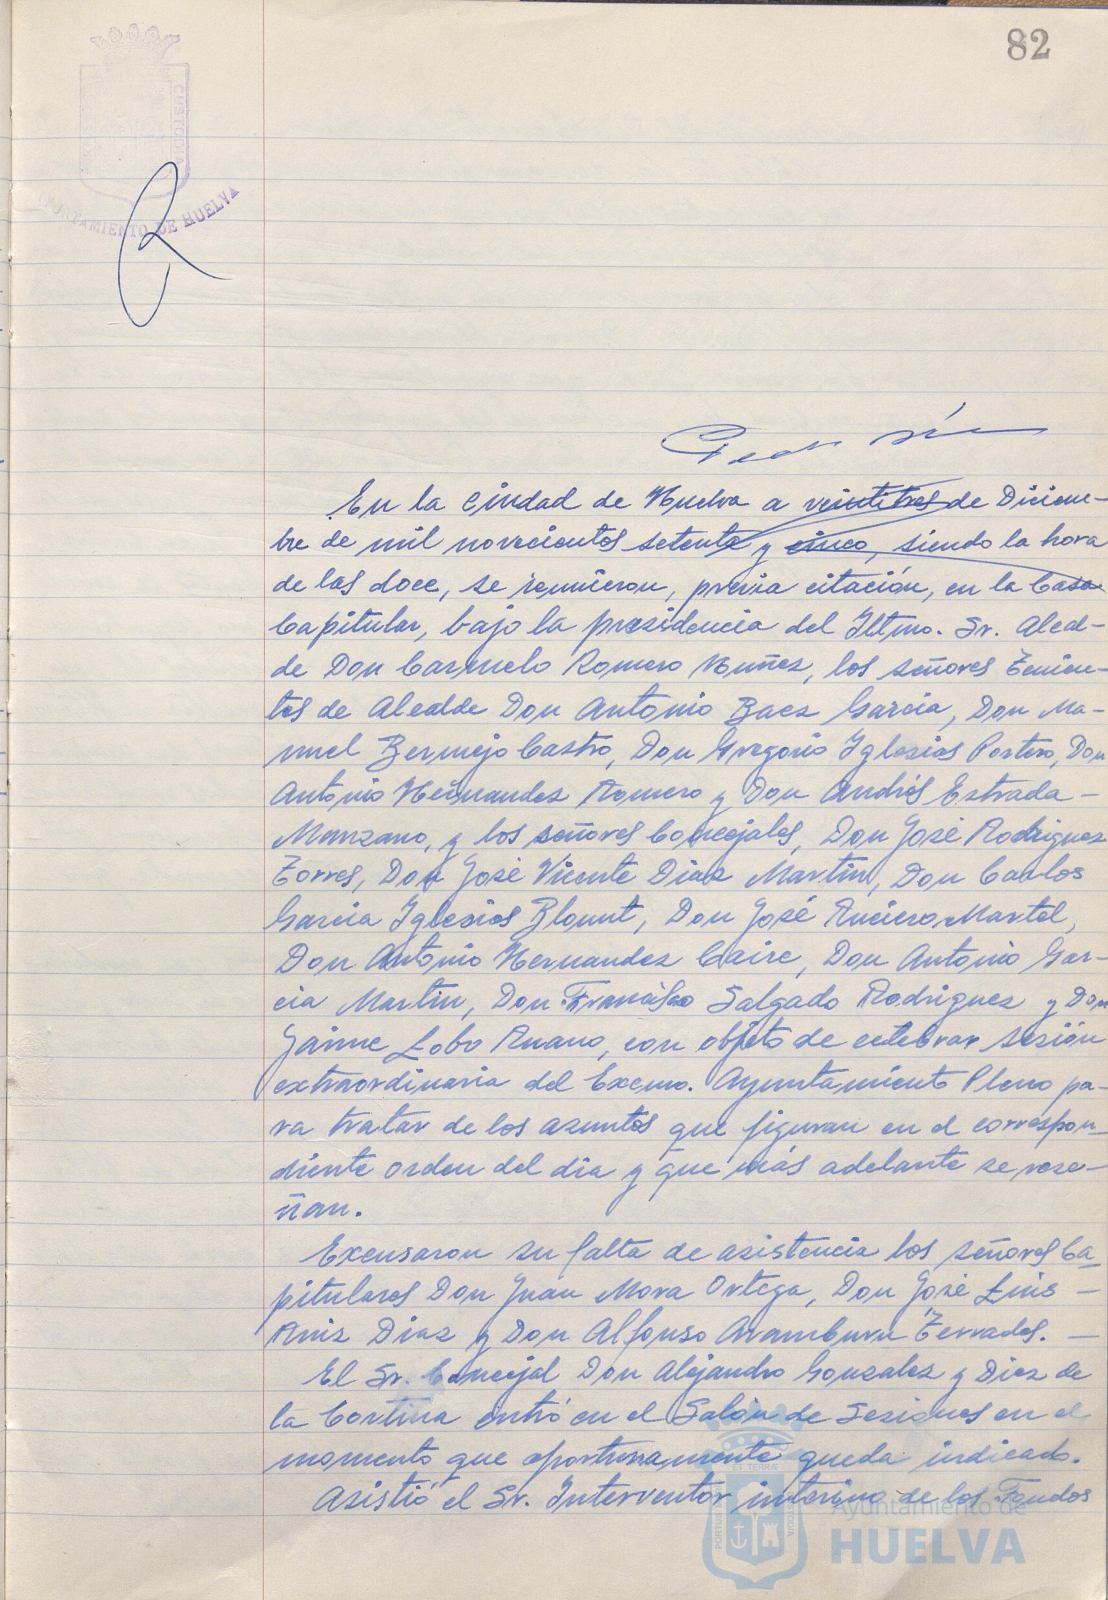 82
AYUNTAMIENTO DE HUELVA
En la Ciudad de Huelva a veintitres de Diciem-
bre de mil novecientos setenta y cinco, siendo la hora
de las doce, se reunieron, previa citación, en la Casa
Capitular, bajo la presidencia del Iltmo. Sr. Alcal-
de Don Carmelo Romero Nuñez, los señores Tenien-
tes de Alcalde Don Antonio Baez Garcia, Don Ma-
nuel Bermejo Castro, Don Gregorio Iglesias Portero, Don
Antonio Hernandez Romero y Don Andrés Estrada-
Manzano, y los señores Concejales, Don José Rodriguez
Torres, Don José Vicente Diaz Martin, Don Carlos
Garcia Iglesias Blount, Don José Anciero Martel,
Don Antonio Hernandez Caire, Don Antonio Gar-
cia Martin, Don Francisco Salgado Rodriguez y Don
Jaime Lobo Ruano, con objeto de celebrar sesión
extraordinaria del Excmo. Ayuntamiento Pleno pa-
ra tratar de los asuntos que figuran en el correspon-
diente orden del dia y que más adelante se rese-
ñan.
Excusaron su falta de asistencia los señores Ca-
pitulares Don Juan Mora Ortega, Don José Luis -
Ruiz Diaz y Don Alfonso Aramburu Terrades. -
El Sr. Concejal Don Alejandro Gonzalez y Diez de
la Cortina entró en el Salón de Sesiones en el
momento que oportunamente queda indicado.
Asistió el Sr. Interventor interino de los Fondos
Ayuntamiento de
HUELVA